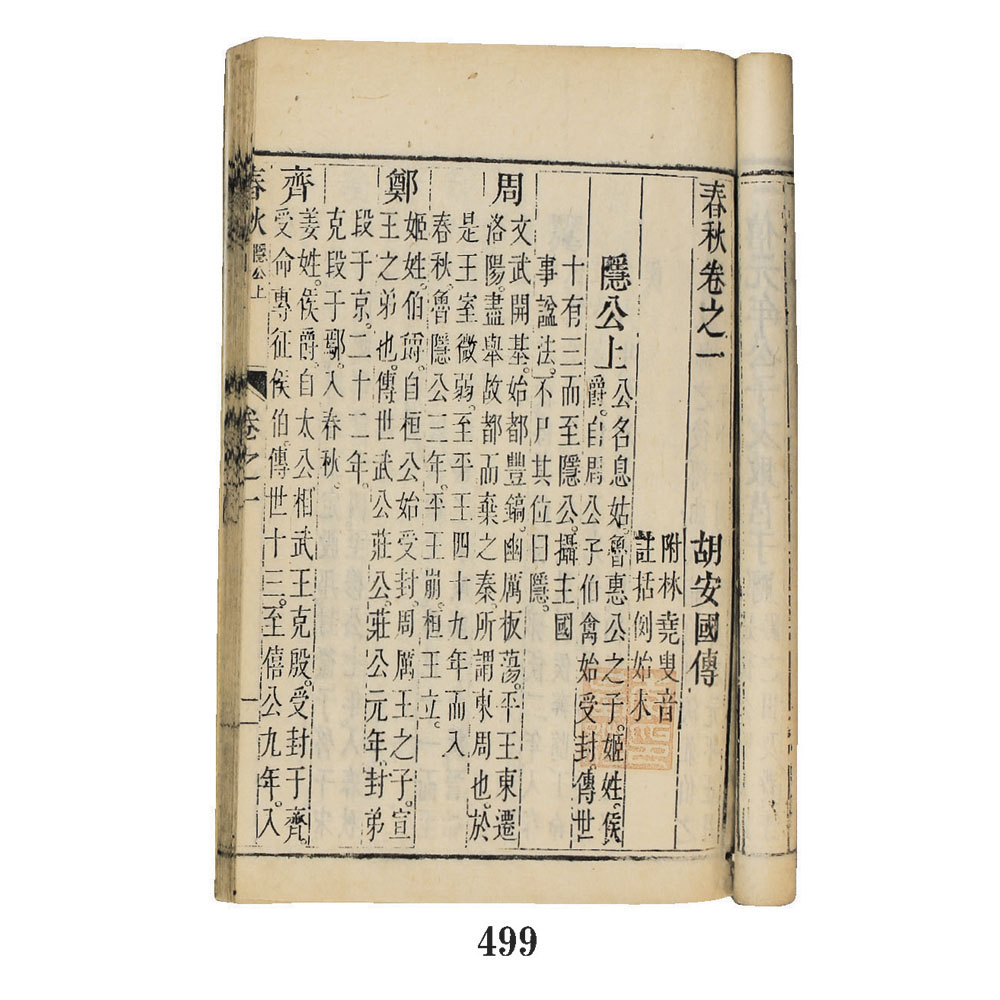 春秋卷之一
胡安國傳
附林堯叟音
註括例始末
隱公上
公名息姑。魯惠公之子。姬姓。侯
爵。自周公子伯禽始受封。傳世
十有三而至隱公。攝主國
事諡法。不尸其位曰隱。
周
文武開基。始都豐鎬。幽厲板蕩。平王東遷
洛陽。盡舉故都而棄之秦。所謂東周也。於
是王室微弱。至平王四十九年而入
春秋。魯隱公三年。平王崩。桓王立。
鄭
姬姓。伯爵。自桓公始受封。周厲王之子。宣
王之弟也。傳世武公莊公。莊公元年。封弟
段于京。二十二年。
克段于鄢。入春秋。
齊
姜姓。侯爵。自太公相武王克殷。受封于齊。
受命專征侯伯。傳世十三。至僖公九年。入
春秋 隱公上 卷之一 一
499